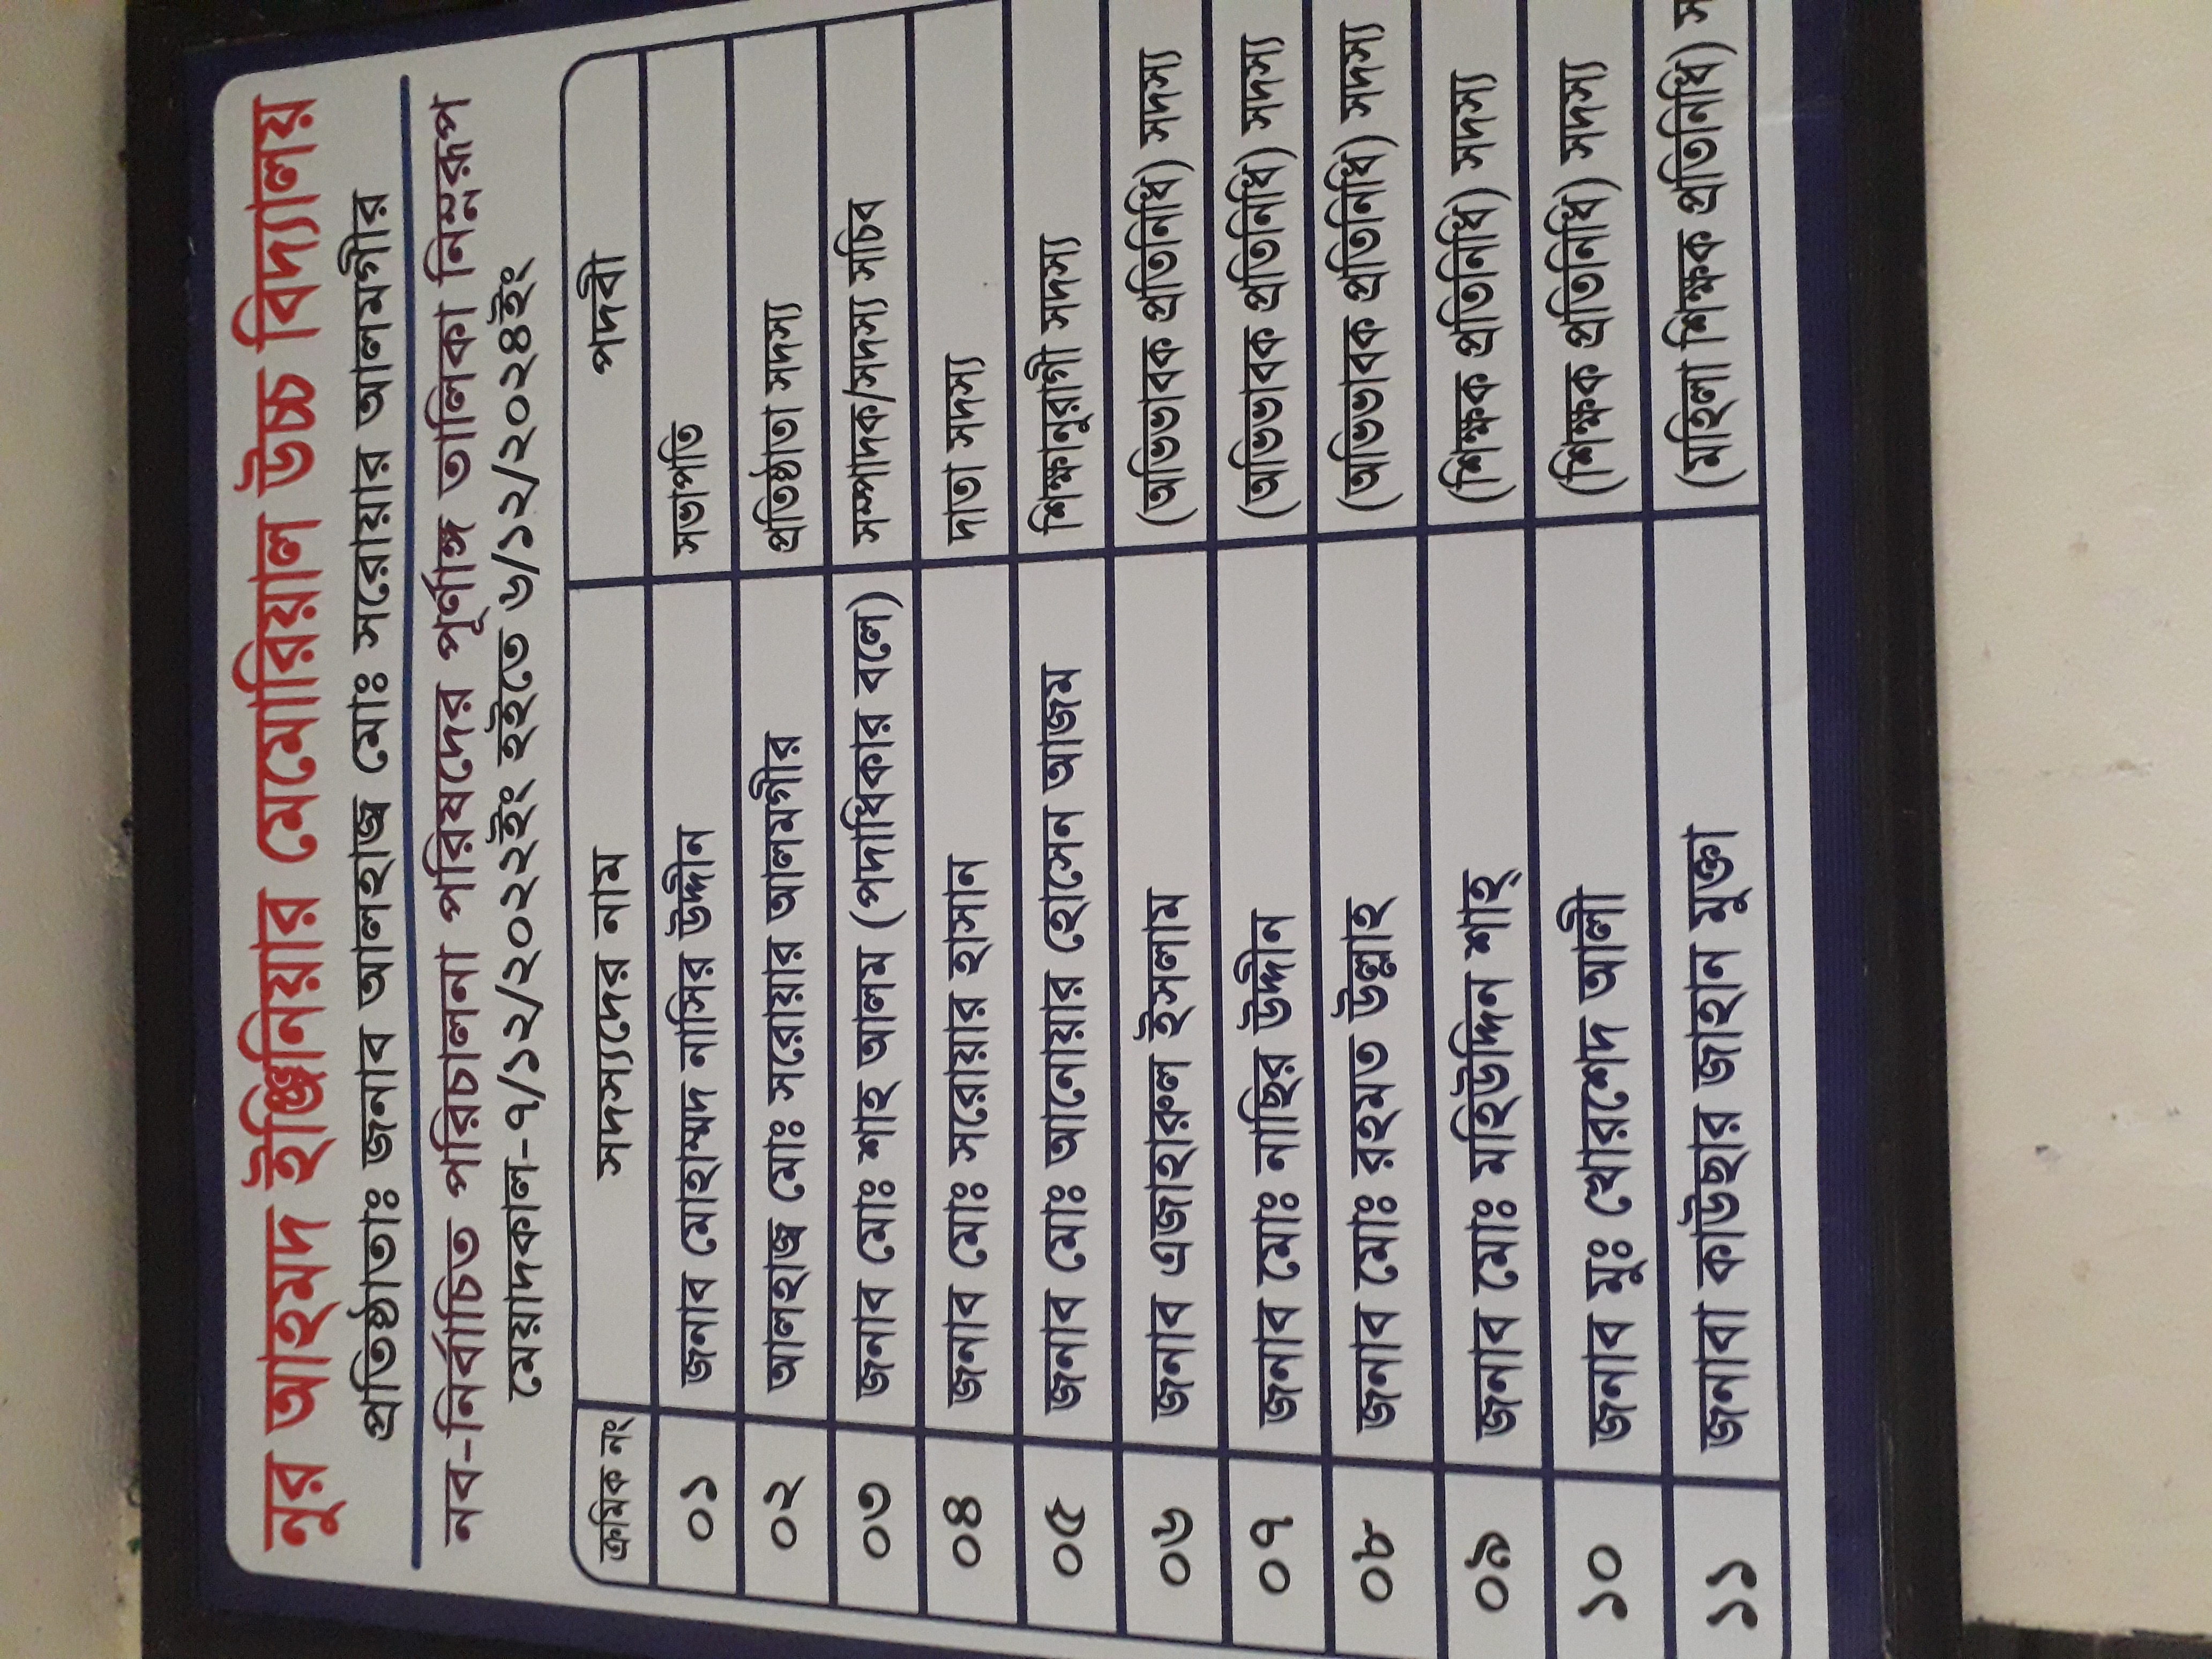 নুর আহমদ ইঞ্জিনিয়ার মেমোরিয়াল উচ্চ বিদ্যালয়
প্রতিষ্ঠাতাঃ জনাব আলহাজ্ব মোঃ সরোয়ার আলমগীর
নব-নির্বাচিত পরিচালনা পরিষদের পূর্ণাঙ্গ তালিকা নিম্নরূপ
মেয়াদকাল-৭/১২/২০২২ইং হইতে ৬/১২/২০২৪ইং
ক্রমিক নং সদস্যদের নাম পদবী
০১ জনাব মোহাম্মদ নাসির উদ্দীন সভাপতি
০২ আলহাজ্ব মোঃ সরোয়ার আলমগীর প্রতিষ্ঠাতা সদস্য
০৩ জনাব মোঃ শাহ আলম (পদাধিকার বলে) সম্পাদক/সদস্য সচিব
০৪ জনাব মোঃ সরোয়ার হাসান দাতা সদস্য
০৫ জনাব মোঃ আনোয়ার হোসেন আজম শিক্ষানুরাগী সদস্য
০৬ জনাব এজাহারুল ইসলাম (অভিভাবক প্রতিনিধি) সদস্য
০৭ জনাব মোঃ নাছির উদ্দীন (অভিভাবক প্রতিনিধি) সদস্য
০৮ জনাব মোঃ রহমত উল্লাহ (অভিভাবক প্রতিনিধি) সদস্য
০৯ জনাব মোঃ মহিউদ্দিন শাহ্ (শিক্ষক প্রতিনিধি) সদস্য
১০ জনাব মুঃ খোরশেদ আলী (শিক্ষক প্রতিনিধি) সদস্য
১১ জনাবা কাউছার জাহান মুক্তা (মহিলা শিক্ষক প্রতিনিধি)